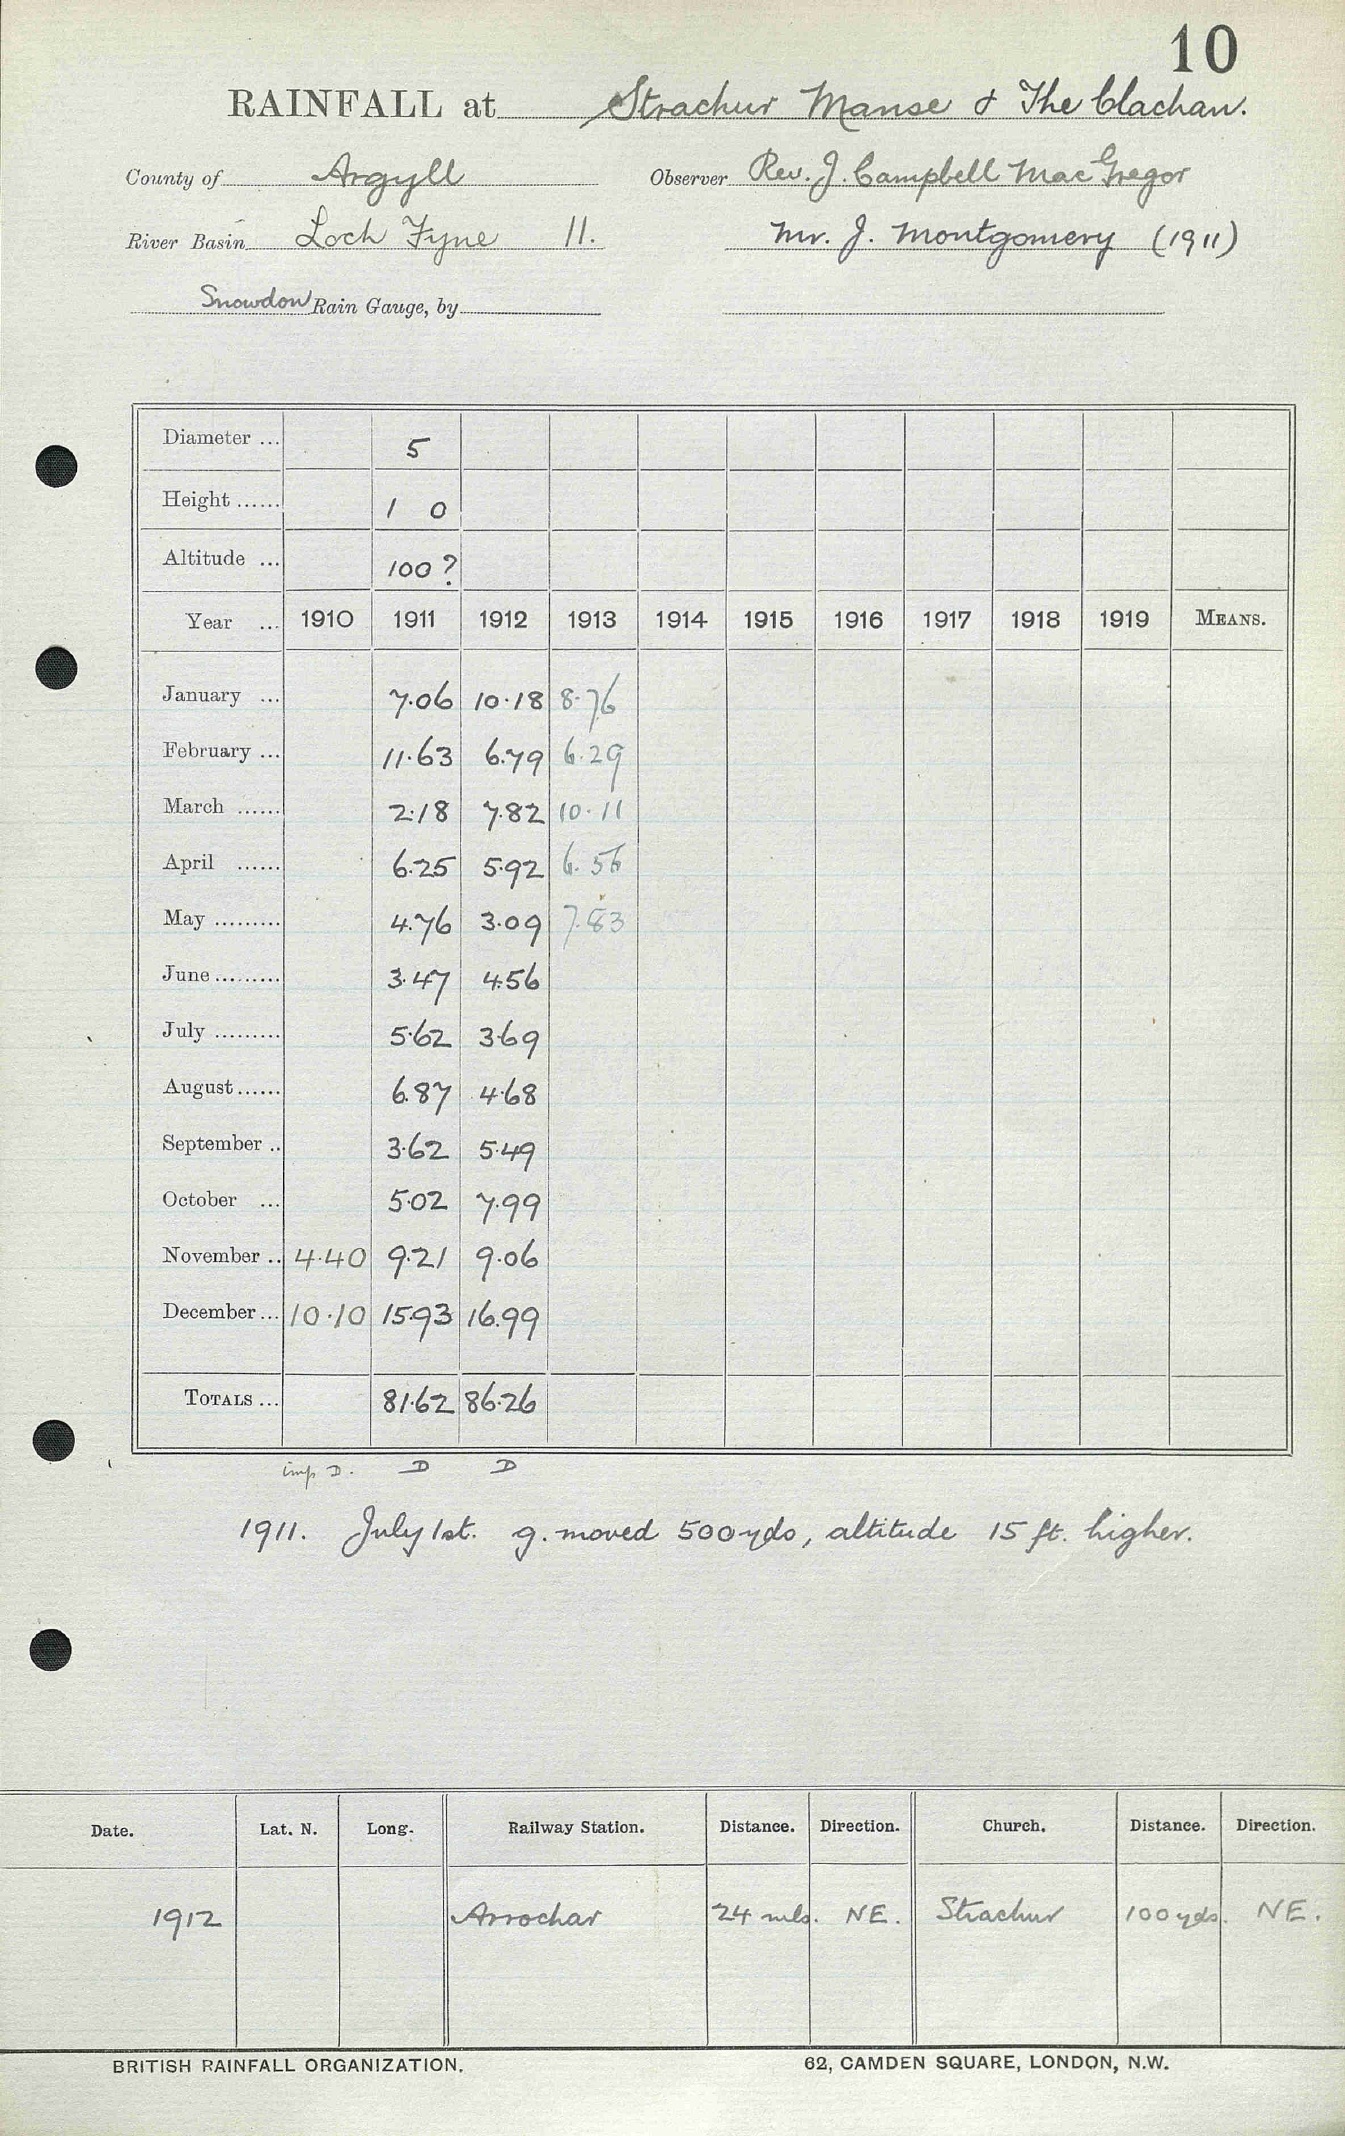 10
RAINFALL at Strachur Manse & The Clachan.
County of Argyll Observer Rev. J. Campbell MacGregor
River Basin Loch Fyne 11. Mr. J. Montgomery (1911)
Snowdon Rain Gauge, by
Diameter ... 5
Height ...... 1 0
Altitude ... 100?
Year ... 1910 1911 1912 1913 1914 1915 1916 1917 1918 1919 MEANS.
January ... 7.06 10.18 8.76
February ... 11.63 6.79 6.29
March ...... 2.18 7.82 10.11
April ...... 6.25 5.92 6.56
May ......... 4.76 3.09 7.83
June ......... 3.47 4.56
July ......... 5.62 3.69
August ...... 6.87 4.68
September .. 3.62 5.49
October ... 5.02 7.99
November .. 4.40 9.21 9.06
December ... 10.10 15.93 16.99
TOTALS ... 81.62 86.26
imp D. D D
1911. July 1st. g. moved 500 yds, altitude 15 ft. higher.
Date. Lat. N. Long. Railway Station. Distance. Direction. Church. Distance. Direction.
1912 Arrochar 24 mls. NE. Strachur 100 yds. NE.
BRITISH RAINFALL ORGANIZATION. 62, CAMDEN SQUARE, LONDON, N.W.